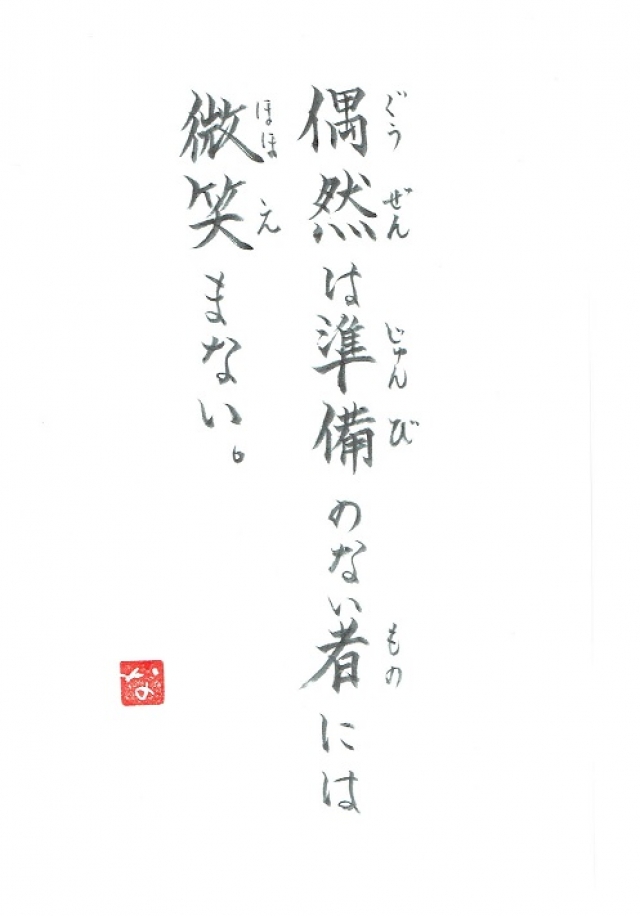 偶然は準備のない者には
ぐうぜん じゅんび もの
微笑まない。
ほほえ
な